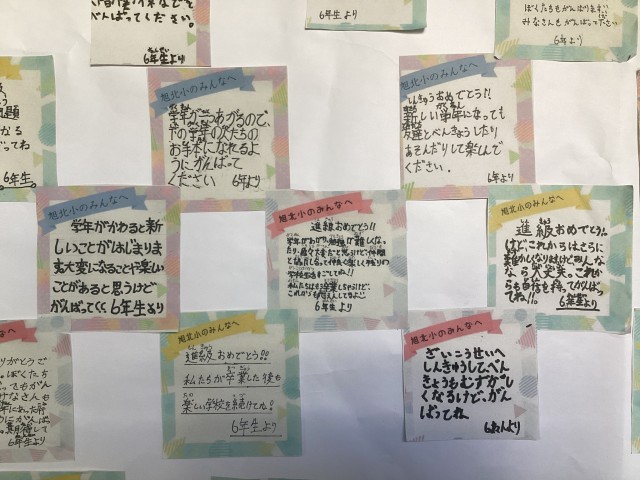 がんばってください。
6年生より
6年生より
ぼくたちもがんばります!!
みなさんもがんばってださい
6年より
なる
ってね
6年生。
旭北小のみんなへ
学年が一つあがるので、
下の学年の人たちの
お手本になれるよ
うにがんばって
ください 6年より
旭北小のみんなへ
しんきゅうおめでとう!!
新しい学年になっても
友達とべんきょうしたり
あそんだりして楽しんで
ください。
6年より
旭北小のみんなへ
学年がかわると新
しいことがはじまりま
す大変になることや楽しい
ことがあると思うけど
がんばってく 6年生より
旭北小のみんなへ
進級おめでとう!!
学校生活をすごしてね!!
私たちはもう卒業しちゃうけど、
これからも
6年生より
旭北小のみんなへ
進級おめでとう!!
けど、これからはさらに
難かしくなりけどみんな
なら大丈夫。これか
らも自信を持ってがんばっ
てね!!。 6年生より
小のみんなへ
りがとうご
。ぼくたち
ってもがん
みなさんも
期待して
6年生より
旭北小のみんなへ
進級おめでとう!!
私たちが卒業した後も
楽しい学校を続けてね!
6年生より
旭北小のみんなへ
ざいこうせいへ
しんきゅうしてべん
きょうもむずかし
くなるけど、がん
ばってね
6ねんより